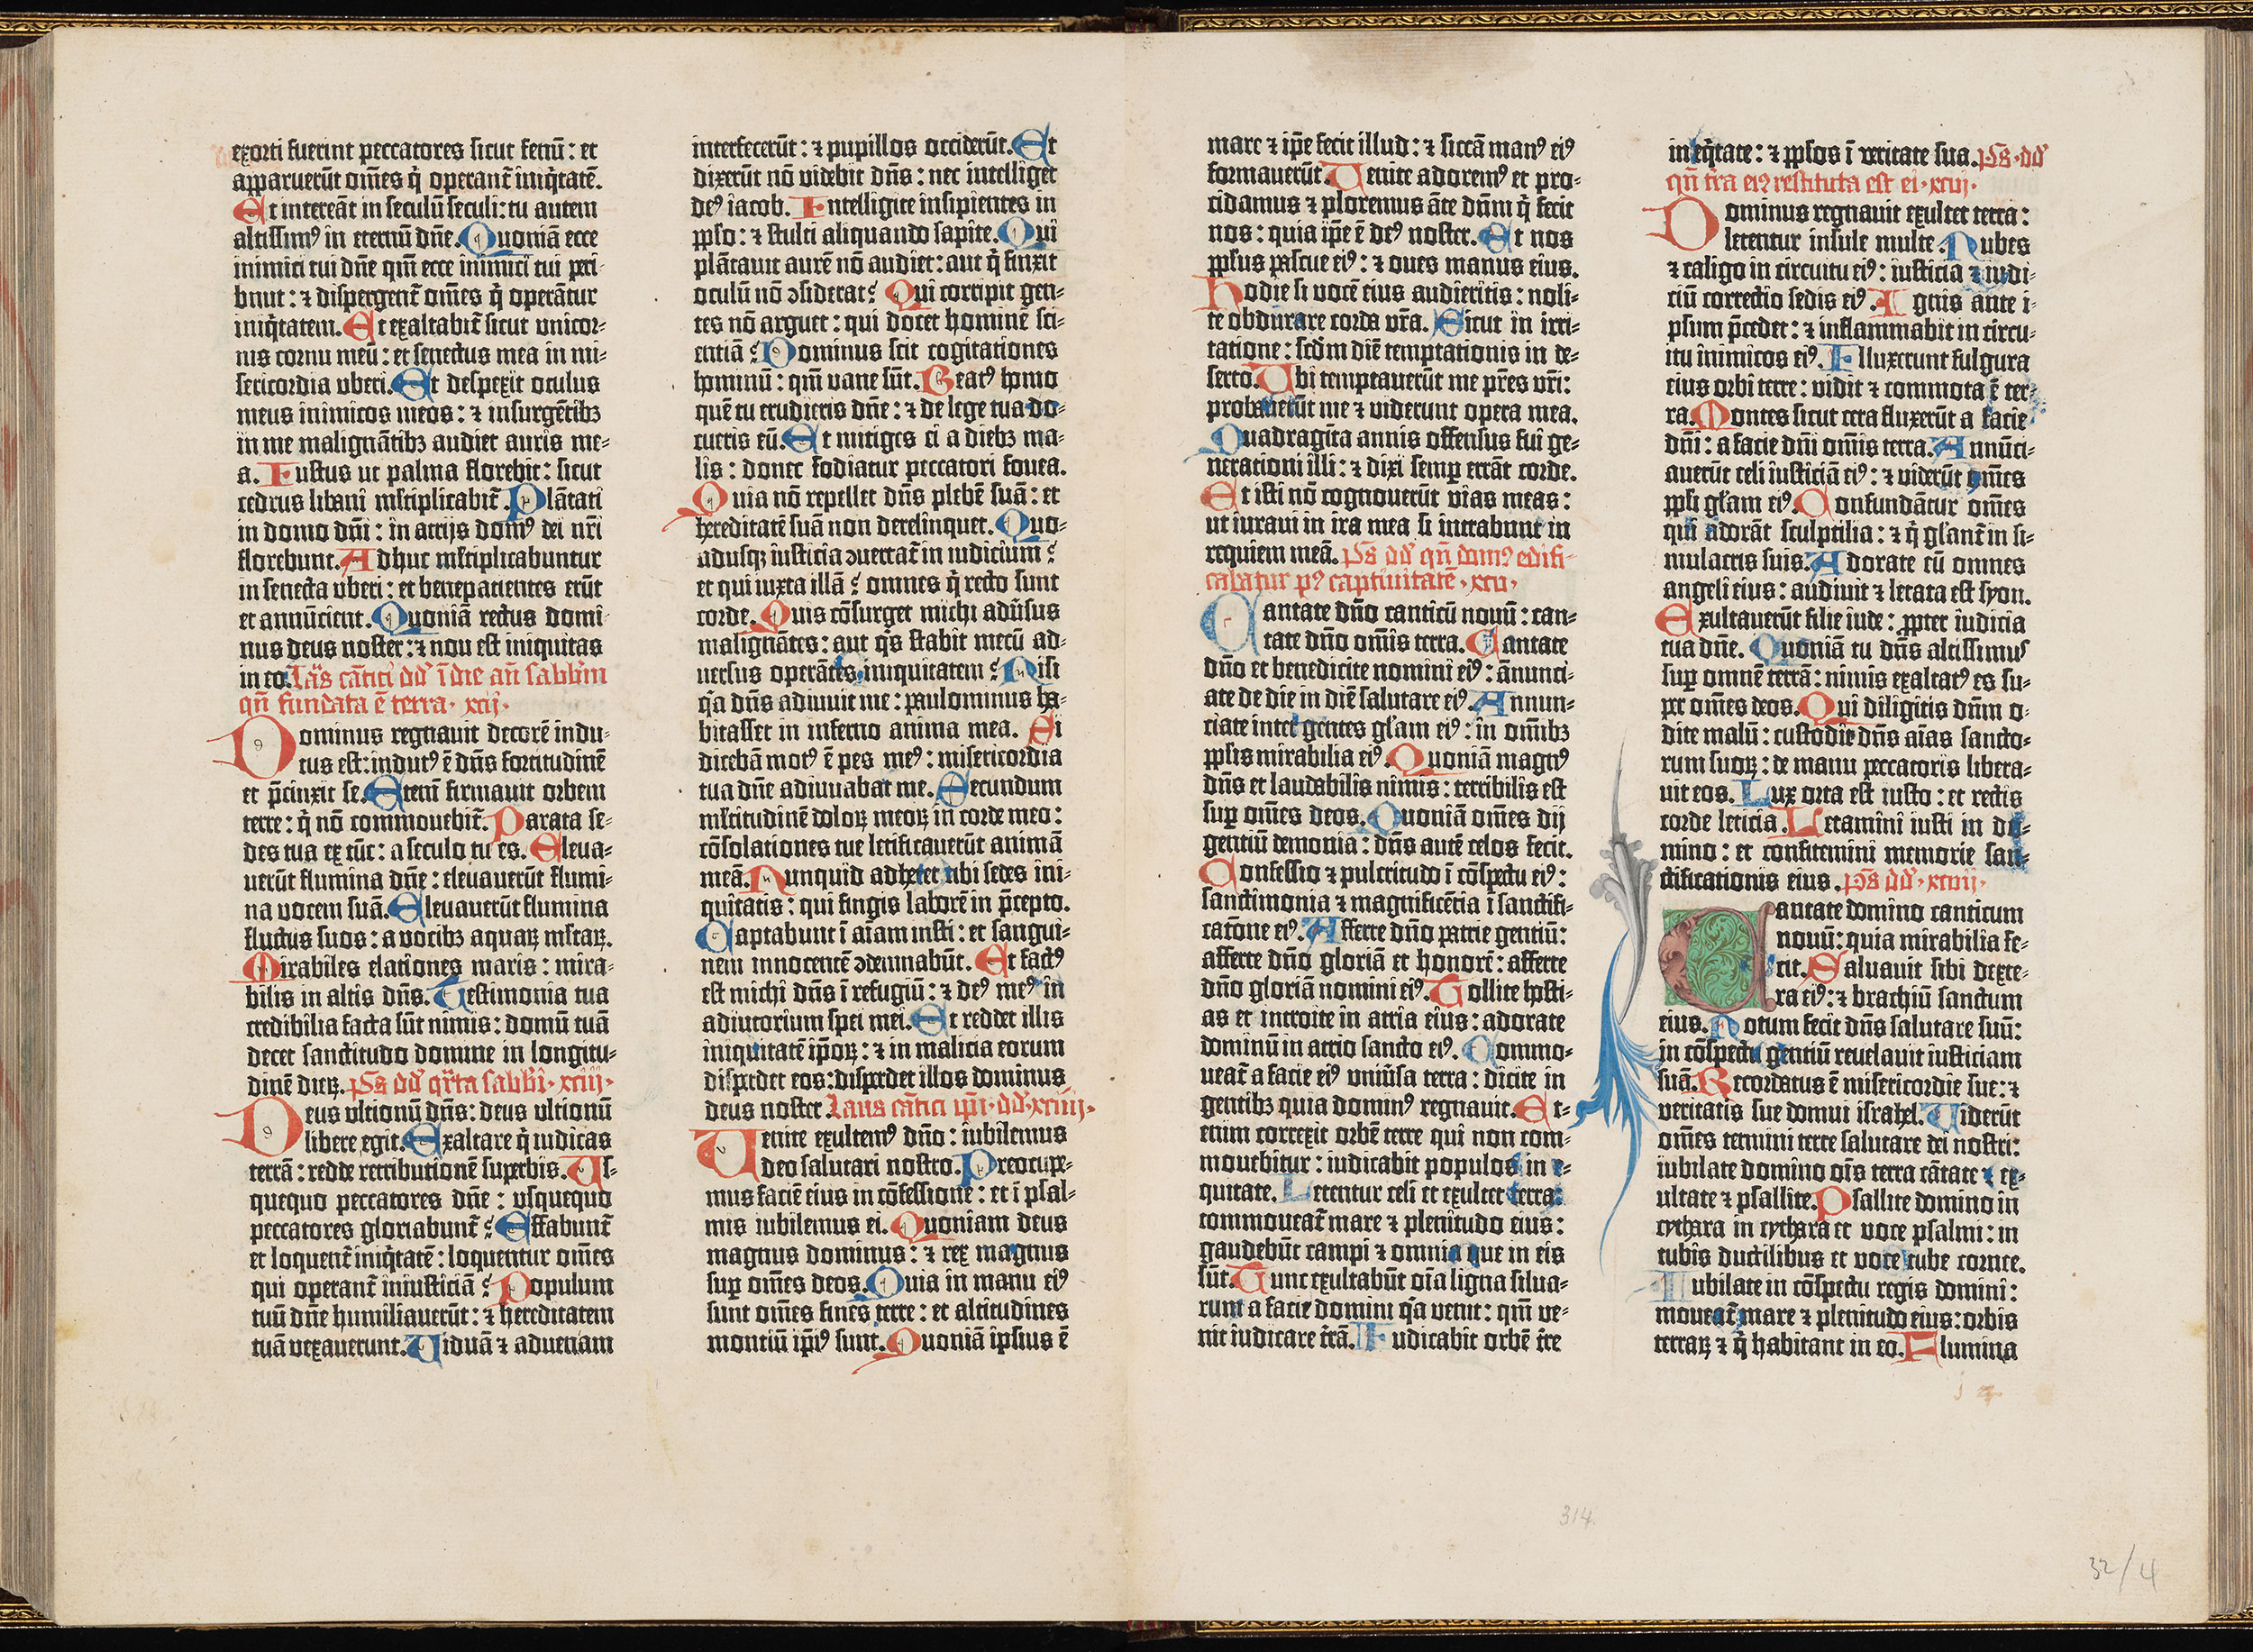 exorti fuerint peccatores sicut fenū : et
apparuerūt om̄es q̄ operant̄ iniq̄tatē.
Et intereāt in seculū seculi : tu autem
altissimꝰ in eternū dn̄e. Quoniā ecce
inimici tui dn̄e qm̄ ecce inimici tui peri-
bunt : ⁊ dispergent̄ om̄es q̄ operātur
iniq̄tatem. Et exaltabit̄ sicut unicor-
nis cornu meū : et senectus mea in mi-
sericordia uberi. Et despexit oculus
meus inimicos meos : ⁊ insurgētibꝫ
in me malignātibꝫ audiet auris me-
a. Iustus ut palma florebit : sicut
cedrus libani ml̄tiplicabit̄. Plātati
in domo dn̄i : in atrijs domꝰ dei nr̄i
florebunt. Adhuc ml̄tiplicabuntur
in senecta uberi : et benepacientes erūt
et annūcient. Quoniā rectus domi-
nus deus noster : ⁊ non est iniquitas
in eo. Laꝰs cātici dd̄ ī die an̄ sabb̄m
qn̄ fundata ē terra. xcij.
Dominus regnauit decorē indu-
tus est : indutꝰ ē dn̄s fortitudinē
et p̄cinxit se. Eteni firmauit orbem
terre : q̄ nō commouebit̄. Parata se-
des tua ex tūc : a seculo tu es. Eleua-
uerūt flumina dn̄e : eleuauerūt flumi-
na uocem suā. Eleuauerūt flumina
fluctus suos : a uocibꝫ aquaꝝ ml̄taꝝ.
Mirabiles elationes maris : mira-
bilis in altis dn̄s. Testimonia tua
credibilia facta sūt nimis : domū tuā
decet sanctitudo domine in longitu-
dinē dieꝝ. Ps̄ dd̄ qr̄ta sabb̄i. xciij.
Deus ultionū dn̄s : deus ultionū
libere egit. Exaltare q̄ iudicas
terrā : redde retributionē superbis. Us-
quequo peccatores dn̄e : usquequo
peccatores gloriabunt̄ ? Effabunt̄
et loquent̄ iniq̄tatē : loquentur om̄es
qui operant̄ iniusticiā ? Populum
tuū dn̄e humiliauerūt : ⁊ hereditatem
tuā uexauerunt. Uiduā ⁊ aduenam
interfecerūt : ⁊ pupillos occiderūt. Et
dixerūt nō uidebit dn̄s : nec intelliget
deꝰ iacob. Intelligite insipientes in
pp̄lo : ⁊ stulti aliquando sapite. Qui
plātauit aurē nō audiet : aut q̄ finxit
oculū nō ↄsiderat ? Qui corripit gen-
tes nō arguet : qui docet hominē sci-
entiā ? Dominus scit cogitationes
hominū : qm̄ uane sūt. Beatꝰ homo
quē tu erudieris dn̄e : ⁊ de lege tua do-
cueris eū. Et mitiges ei a diebꝫ ma-
lis : donec fodiatur peccatori fouea.
Quia nō repellet dn̄s plebē suā : et
hereditatē suā non derelinquet. Quo-
adusqꝫ iusticia ↄuertat̄ in iudicium ?
et qui iuxta illā ? omnes q̄ recto sunt
corde. Quis cōsurget michi adūsus
malignātes : aut q̄s stabit mecū ad-
uersus operātes iniquitatem ? Nisi
q̄a dn̄s adiuuit me : paulominus ha-
bitasset in inferno anima mea. Si
dicebā motꝰ ē pes meꝰ : misericordia
tua dn̄e adiuuabat me. Secundum
ml̄titudinē doloꝝ meoꝝ in corde meo :
cōsolationes tue letificauerūt animā
meā. Nunquid adheret tibi sedes ini-
quitatis : qui fingis laborē in p̄cepto.
Captabunt ī aīam iusti : et sangui-
nem innocentē ↄdemnabūt. Et factꝰ
est michi dn̄s ī refugiū : ⁊ deꝰ meꝰ in
adiutorium spei mei. Et reddet illis
iniquitatē ip̄oꝝ : ⁊ in malicia eorum
disperdet eos : disperdet illos dominus
deus noster. Laus cātici ip̄i. dd̄. xciiij.
Uenite exultemꝰ dn̄o : iubilemus
deo salutari nostro. Preoccupe-
mus faciē eius in cōfessione : et ī psal-
mis iubilemus ei. Quoniam deus
magnus dominus : ⁊ rex magnus
sup̄ om̄es deos. Quia in manu eiꝰ
sunt om̄es fines terre : et altitudines
montiū ip̄iꝰ sunt. Quoniā ipsius ē
mare ⁊ ip̄e fecit illud : ⁊ siccā manꝰ eiꝰ
formauerūt. Uenite adoremꝰ et pro-
cidamus ⁊ ploremus āte dn̄m q̄ fecit
nos : quia ip̄e ē deꝰ noster. Et nos
pp̄lus pascue eiꝰ : ⁊ oues manus eius.
Hodie si uocē eius audieritis : noli-
te obdurare corda vr̄a. Sicut in irri-
tatione : scd̄m diē temptationis in de-
serto. Ubi temptauerūt me pr̄es vr̄i :
probauerūt me ⁊ uiderunt opera mea.
Quadragīta annis offensus fui ge-
nerationi illi : ⁊ dixi semp̄ errāt corde.
Et isti nō cognouerūt uias meas :
ut iuraui in ira mea si intrabunt in
requiem meā. Ps̄ dd̄ qn̄ domꝰ edifi-
cabatur pꝰ captiuitatē. xcv.
Cantate dn̄o canticū nouū : can-
tate dn̄o om̄is terra. Cantate
dn̄o et benedicite nomini eiꝰ : ānunci-
ate de die in diē salutare eiꝰ. Annun-
ciate inter gentes gl̄am eiꝰ : in om̄ibꝫ
pp̄lis mirabilia eiꝰ. Quoniā magnꝰ
dn̄s et laudabilis nimis : terribilis est
sup̄ om̄es deos. Quoniā om̄es dij
gentiū demonia : dn̄s autē celos fecit.
Confessio ⁊ pulcritudo ī cōspectu eiꝰ :
sanctimonia ⁊ magnificētia ī sanctifi-
catōne eiꝰ. Afferte dn̄o patrie gentiū :
afferte dn̄o gloriā et honorē : afferte
dn̄o gloriā nomini eiꝰ. Tollite hosti-
as et introite in atria eius : adorate
dominū in atrio sancto eiꝰ. Commo-
ueat̄ a facie eiꝰ uniūsa terra : dicite in
gentibꝫ quia dominꝰ regnauit. Et-
enim correxit orbē terre qui non com-
mouebitur : iudicabit populos in e-
quitate. Letentur celi et exultet terra
commoueat̄ mare ⁊ plenitudo eius :
gaudebūt campi ⁊ omnia que in eis
sūt. Tunc exultabūt oīa ligna silua-
rum a facie domini q̄a uenit : qm̄ ue-
nit iudicare tr̄ā. Iudicabit orbē tr̄e
in eq̄tate : ⁊ pp̄los ī ueritate sua. Ps̄. dd̄
qn̄ tr̄a eiꝰ restituta est ei. xcvj.
Dominus regnauit exultet terra :
letentur insule multe. Nubes
⁊ caligo in circuitu eiꝰ : iusticia ⁊ iudi-
ciū correctio sedis eiꝰ. Ignis ante i-
psum p̄cedet : ⁊ inflammabit in circu-
itu inimicos eiꝰ. Illuxerunt fulgura
eius orbi terre : uidit ⁊ commota ē ter-
ra. Montes sicut cera fluxerūt a facie
dn̄i : a facie dn̄i om̄is terra. Annūci-
auerūt celi iusticiā eiꝰ : ⁊ uiderūt om̄es
pp̄li gl̄am eiꝰ. Confundātur om̄es
qui adorāt sculptilia : ⁊ q̄ gl̄ant̄ in si-
mulacris suis. Adorate eū omnes
angeli eius : audiuit ⁊ letata est syon.
Exultauerūt filie iude : ꝓpter iudicia
tua dn̄e. Quoniā tu dn̄s altissimus
sup̄ omnē terrā : nimis exaltatꝰ es su-
per om̄es deos. Qui diligitis dn̄m o-
dite malū : custodit dn̄s aīas sancto-
rum suoꝝ : de manu peccatoris libera-
uit eos. Lux orta est iusto : et rectis
corde leticia. Letamini iusti in do-
mino : et confitemini memorie san-
ctificationis eius. Ps̄ dd̄. xcvij.
Cantate domino canticum
nouū : quia mirabilia fe-
cit. Saluauit sibi dexte-
ra eiꝰ : ⁊ brachiū sanctum
eius. Notum fecit dn̄s salutare suū :
in cōspectu gentiū reuelauit iusticiam
suā. Recordatus ē misericordie sue : ⁊
ueritatis sue domui israhel. Uiderūt
om̄es termini terre salutare dei nostri :
iubilate domino oīs terra cātate ⁊ ex-
ultate ⁊ psallite. Psallite domino in
cythara in cythara et uoce psalmi : in
tubis ductilibus et uoce tube cornee.
Iubilate in cōspectu regis domini :
moueat̄ mare ⁊ plenitudo eius : orbis
terraꝝ ⁊ q̄ habitant in eo. Flumina
314
32/4